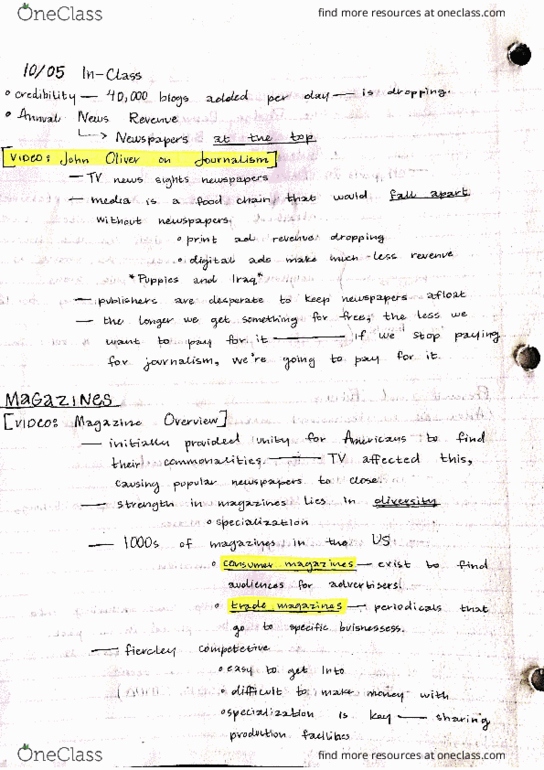 OneClass find more resources at oneclass.com
10/05 In-Class
• credibility — 40,000 blogs added per day — is dropping.
• Annual News Revenue
↳ Newspapers at the top
[VIDEO: John Oliver on Journalism]
— TV news sights newspapers
— media is a food chain that would fall apart
without newspapers.
• print ad revenue dropping
• digital ads make much less revenue
*Puppies and Iraq*
— publishers are desperate to keep newspapers afloat
— the longer we get something for free, the less we
want to pay for it — If we stop paying
for journalism, we're going to pay for it.
MAGAZINES
[VIDEO: Magazine Overview]
— initially provided unity for Americans to find
their commonalities. — TV affected this,
causing popular newspapers to close.
— strength in magazines lies in diversity
• specialization
— 1000s of magazines in the US
• consumer magazines — exist to find
audiences for advertisers.
• trade magazines — periodicals that
go to specific buisnessess.
— fiercley competetive
• easy to get into
• difficult to make money with
• specialization is key — sharing
production facilities
OneClass find more resources at oneclass.com